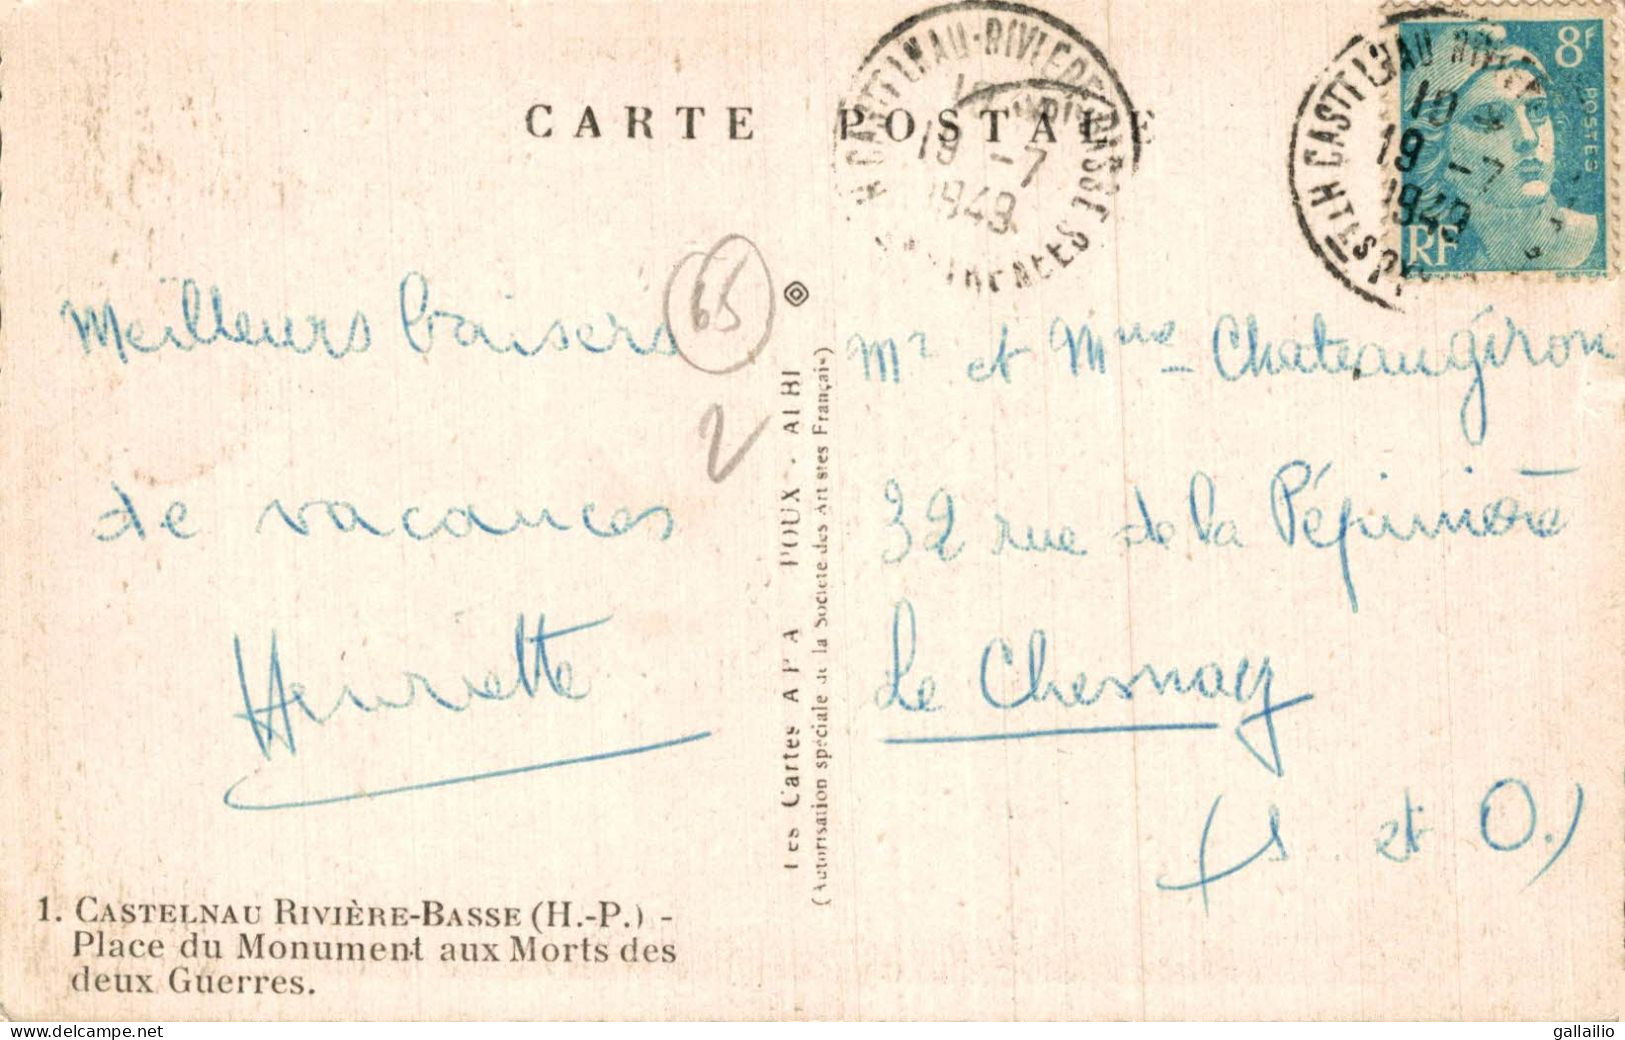 CARTE POSTALE
CASTELNAU-RIVIERE-BASSE
19
19 -7
1949
CASTELNAU RIVIERE
19
19 -7
1949
8F
POSTES
RF
65
2
Meilleurs baisers
de vacances
Henriette
Mr et Mme Chateaugiron
32 rue de la Pépinière
Le Chesnay
(S. et O.)
Les Cartes APA POUX - ALBI
(Autorisation spéciale de la Société des Artistes Français)
1. CASTELNAU RIVIÈRE-BASSE (H.-P.) -
Place du Monument aux Morts des
deux Guerres.
delcampe.net
gallailio